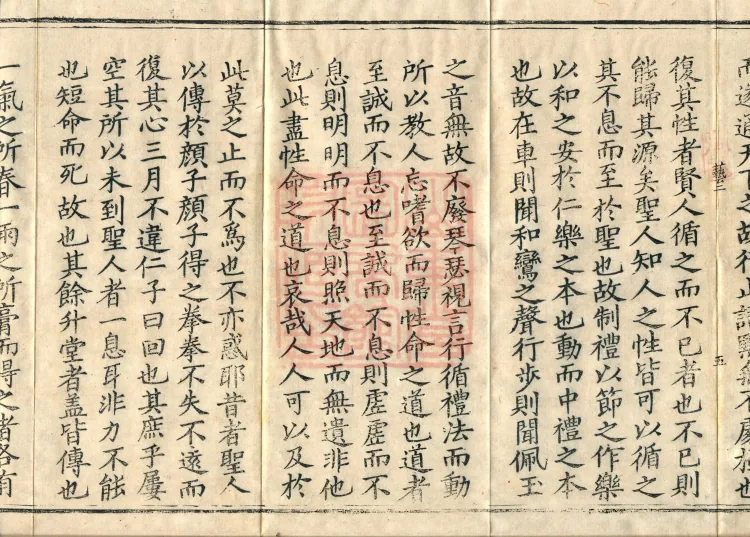 而遂通天下之故行止語默無不處於極也
藝三
五
復其性者賢人循之而不已者也不已則
能歸其源矣聖人知人之性皆可以循之
其不息而至於聖也故制禮以節之作樂
以和之安於仁樂之本也動而中禮之本
也故在車則聞和鸞之聲行步則聞佩玉
之音無故不廢琴瑟視言行循禮法而動
所以教人忘嗜欲而歸性命之道也道者
至誠而不息也至誠而不息則虛虛而不
息則明明而不息則照天地而無遺非他
也此盡性命之道也哀哉人人可以及於
此莫之止而不為也不亦惑耶昔者聖人
以傳於顏子顏子得之拳拳不失不遠而
復其心三月不違仁子曰回也其庶乎屢
空其所以未到聖人者一息耳非力不能
也短命而死故也其餘升堂者盖皆傳也
一氣之所養一雨之所膏而得之者各有